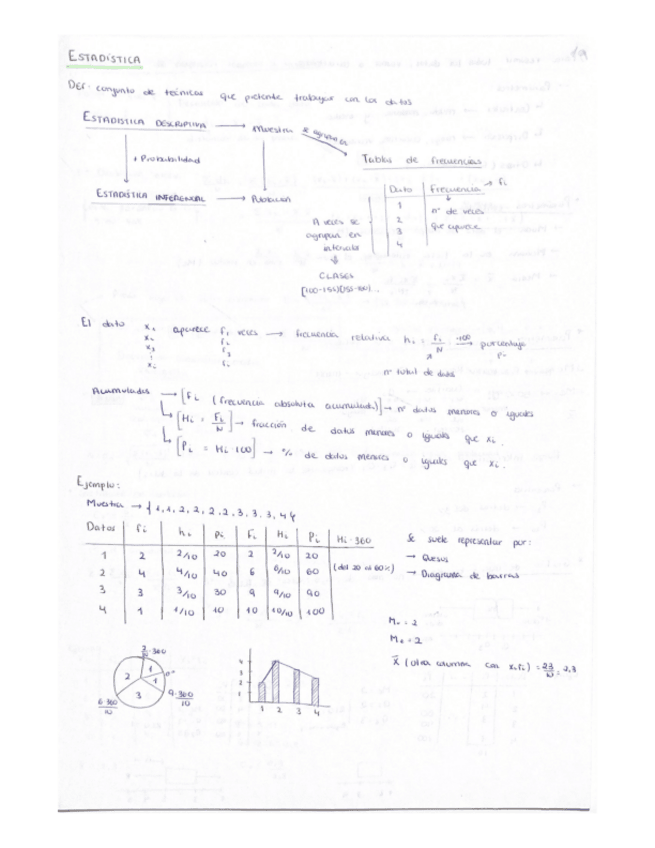 ESTADÍSTICA
Def: conjunto de técnicas que pretende trabajar con los datos
ESTADÍSTICA DESCRIPTIVA → Muestra se agrupan en
+ Probabilidad
Tablas de frecuencias
ESTADÍSTICA INFERENCIAL → Población
Dato | frecuencia → fi
1
2
3
4
nº de veces
que aparece
A veces se
agrupan en
intervalos
CLASES
El dato x₁ aparece f₁ veces → frecuencia relativa hi = fi/N ·100 → porcentaje
nº total de datos
Acumuladas → [Fi (frecuencia absoluta acumulada)] → nº datos menores o iguales
[Hi = Fi/N] → fracción de datos menores o iguales que xi.
[Pi = Hi·100] → % de datos menores o iguales que xi.
Ejemplo:
Muestra → {1, 1, 2, 2, 2, 2, 3, 3, 3, 4}
Datos | fi | hi | pi | Fi | Hi | Pi | Hi·360
1 | 2 | 2/10 | 20 | 2 | 2/10 | 20
2 | 4 | 4/10 | 40 | 6 | 6/10 | 60 (del 20 al 60%)
3 | 3 | 3/10 | 30 | 9 | 9/10 | 90
4 | 1 | 1/10 | 10 | 10 | 10/10 | 100
Se suele representar por:
→ Quesos
→ Diagrama de barras
Mo = 2
Me = 2
x̄ (otra columna con xi·fi) = 23/10 = 2,3
2/10·360
0º
2
1
3
6·360/10
9·360/10
4
3
2
1
1 2 3 4